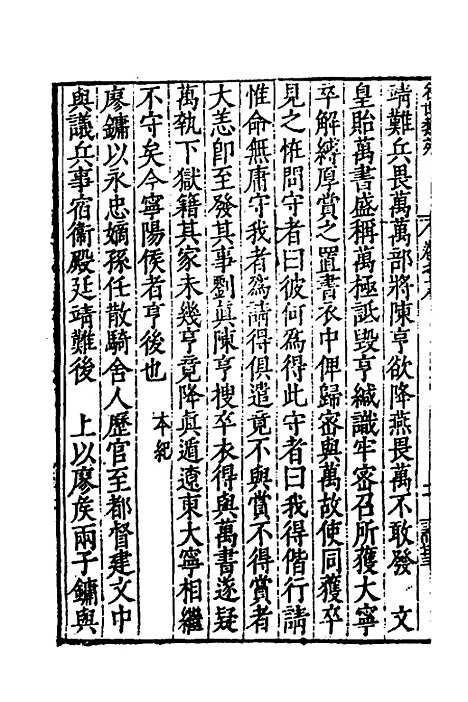 靖難兵畏萬萬部將陳亨欲降燕畏萬不敢發　文
皇貽萬書盛稱萬極詆毀亨緘識牢密召所獲大寧
卒解縛厚賞之置書衣中俾歸密與萬故使同獲卒
見之恠問守者曰彼何為得此守者曰我得偕行請
惟命無庸守我者為請得俱遣竟不與賞不得賞者
大恙即至發其事劉眞陳亨搜卒衣得與萬書遂疑
萬執下獄籍其家未幾亨竟降眞遁遼東大寧相繼
不守矣今寧陽侯者亨後也　本紀
廖鏞以永忠嫡孫任散騎舍人歷官至都督建文中
與議兵事宿衞殿廷靖難後　上以廖侯兩子鏞與